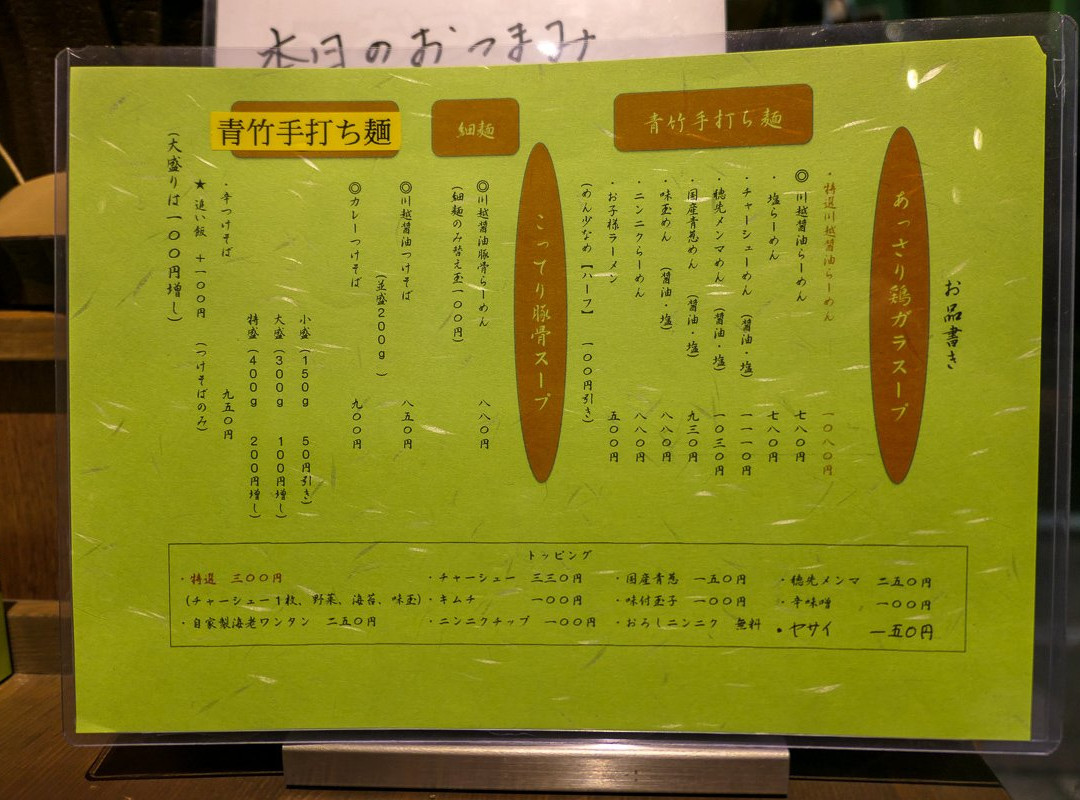 本日のおつまみ
お品書き
あっさり鶏ガラスープ
青竹手打ち麺
・特選川越醤油らーめん 一〇八〇円
◎川越醤油らーめん 七八〇円
・塩らーめん 七八〇円
・チャーシューめん (醤油・塩) 一一一〇円
・穂先メンマめん (醤油・塩) 一〇三〇円
・国産青葱めん (醤油・塩) 九三〇円
・味玉めん (醤油・塩) 八八〇円
・ニンニクらーめん 八八〇円
・お子様ラーメン 五〇〇円
(めん少なめ【ハーフ】 一〇〇円引き)
こってり豚骨スープ
細麺
◎川越醤油豚骨らーめん 八八〇円
(細麺のみ替え玉一〇〇円)
青竹手打ち麺
◎川越醤油つけそば 八五〇円
(並盛200g)
◎カレーつけそば 九〇〇円
小盛(150g 50円引き)
大盛(300g 100円増し)
特盛(400g 200円増し)
・辛つけそば 九五〇円
★追い飯 +一〇〇円 (つけそばのみ)
(大盛りは一〇〇円増し)
トッピング
・特選 三〇〇円 ・チャーシュー 三三〇円 ・国産青葱 一五〇円 ・穂先メンマ 二五〇円
(チャーシュー1枚、野菜、海苔、味玉) ・キムチ 一〇〇円 ・味付玉子 一〇〇円 ・辛味噌 一〇〇円
・自家製海老ワンタン 二五〇円 ・ニンニクチップ 一〇〇円 ・おろしニンニク 無料 ・ヤサイ 一五〇円